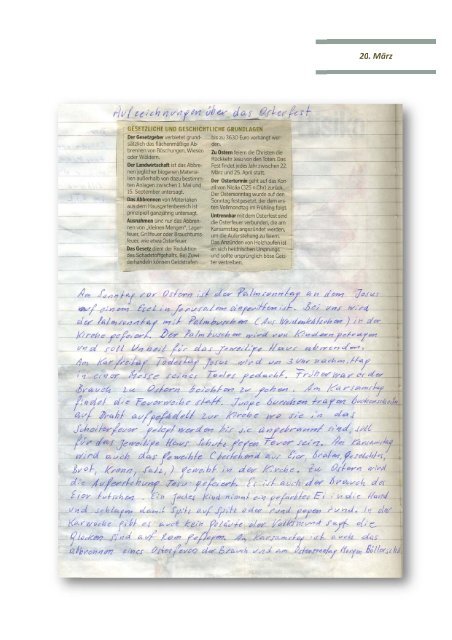 20. März
Aufzeichnungen über das Osterfest
GESETZLICHE UND GESCHICHTLICHE GRUNDLAGEN
Der Gesetzgeber verbietet grund-
sätzlich das flächenmäßige Ab-
brennen von Böschungen, Wiesen
oder Wäldern.
Der Landwirtschaft ist das Abbren-
nen jeglicher biogenen Materi-
alien außerhalb von dazu bestimm-
ten Anlagen zwischen 1. Mai und
15. September untersagt.
Das Abbrennen von Materialien
aus dem Hausgartenbereich ist
prinzipiell ganzjährig untersagt.
Ausnahmen sind nur das Abbren-
nen von „kleinen Mengen“, Lager-
feuer, Grillfeuer oder Brauchtums-
feuer, wie etwa Osterfeuer.
Das Gesetz dient der Reduktion
des Schadstoffgehalts. Bei Zuwi-
derhandeln können Geldstrafen
bis zu 3630 Euro verhängt wer-
den.
Zu Ostern feiern die Christen die
Rückkehr Jesu von den Toten. Das
Fest findet jedes Jahr zwischen 22.
März und 25. April statt.
Der Ostertermin geht auf das Kon-
zil von Nicäa (325 n.Chr.) zurück.
Der Ostersonntag wurde auf den
Sonntag festgesetzt, der dem ers-
ten Vollmondtag im Frühling folgt.
Untrennbar mit dem Osterfest sind
die Osterfeuer verbunden, die am
Karsamstag angezündet werden,
um die Auferstehung zu feiern.
Das Anzünden von Holzhaufen ist
an sich heidnischen Ursprungs
und sollte ursprünglich böse Geis-
ter vertreiben.
Am Sonntag vor Ostern ist der Palmsonntag an dem Jesus
auf einem Esel in Jerusalem angeritten ist. Bei uns wird
der Palmsonntag mit Palmbuschen (das Weidenkätzchen) in der
Kirche gefeiert. Der Palmbuschen wird von Kindern getragen
und soll Einheit für das jeweilige Haus
Am Karfreitag Todestag Jesus wird um 3 Uhr nachmittag
in einer Messe seines Todes gedacht. Früher war es der
Brauch zu Ostern beichten zu gehen. Am Karsamstag
findet die Feuerweihe statt. Junge Burschen tragen
auf Draht aufgefädelt zur Kirche wo sie in das
Scheiterfeuer gelegt werden bis sie angebrannt sind, soll
für das jeweilige Haus Schutz gegen Feuer sein. Am Karsamstag
wird auch das geweihte Osteressen aus Eier, Braten, Geselchtes,
Brot, Krenn, Salz,) geweiht in der Kirche. Zu Ostern wird
die Auferstehung Jesu gefeiert. Es ist auch der Brauch das
Eier tutschen. Ein jedes Kind nimmt ein gefärbtes Ei in die Hand
und schlagen damit Spitz auf Spitz oder rund gegen rund. In der
Karwoche gibt es auch kein Geläute der Volksmund sagt die
Glocken sind auf Rom geflogen. Am Karsamstag ist auch das
abbrennen eines Osterfeuers der Brauch und am Ostersonntag Morgen